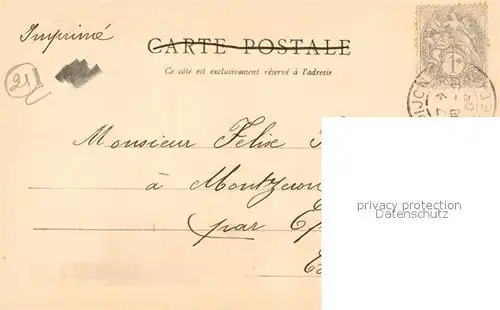 Imprimé
CARTE POSTALE
Ce côté est exclusivement réservé à l'adresse
21
1
DIJON
Monsieur Felix
à
privacy protection
Datenschutz
par